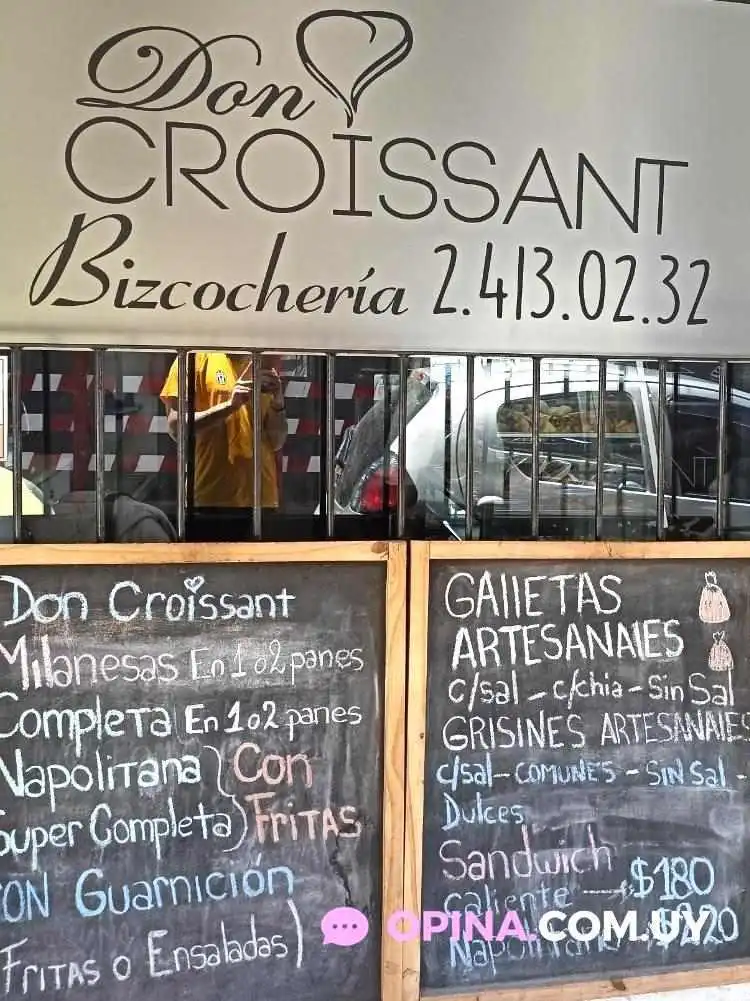 Don
CROISSANT
Bizcochería 2.413.02.32
Don Croissant
Milanesas En 1 o 2 panes
Completa En 1 o 2 panes
Napolitana) Con
Super Completa) Fritas
CON Guarnición
(Fritas o Ensaladas)
GAllETAS
ARTESANAlES
c/sal - c/chia - Sin Sal
GRISINES ARTESANAlES
c/sal - COMUNES - SIN Sal -
Dulces
Sandwich
caliente → $180
Napolitano $220
OPINA.COM.UY